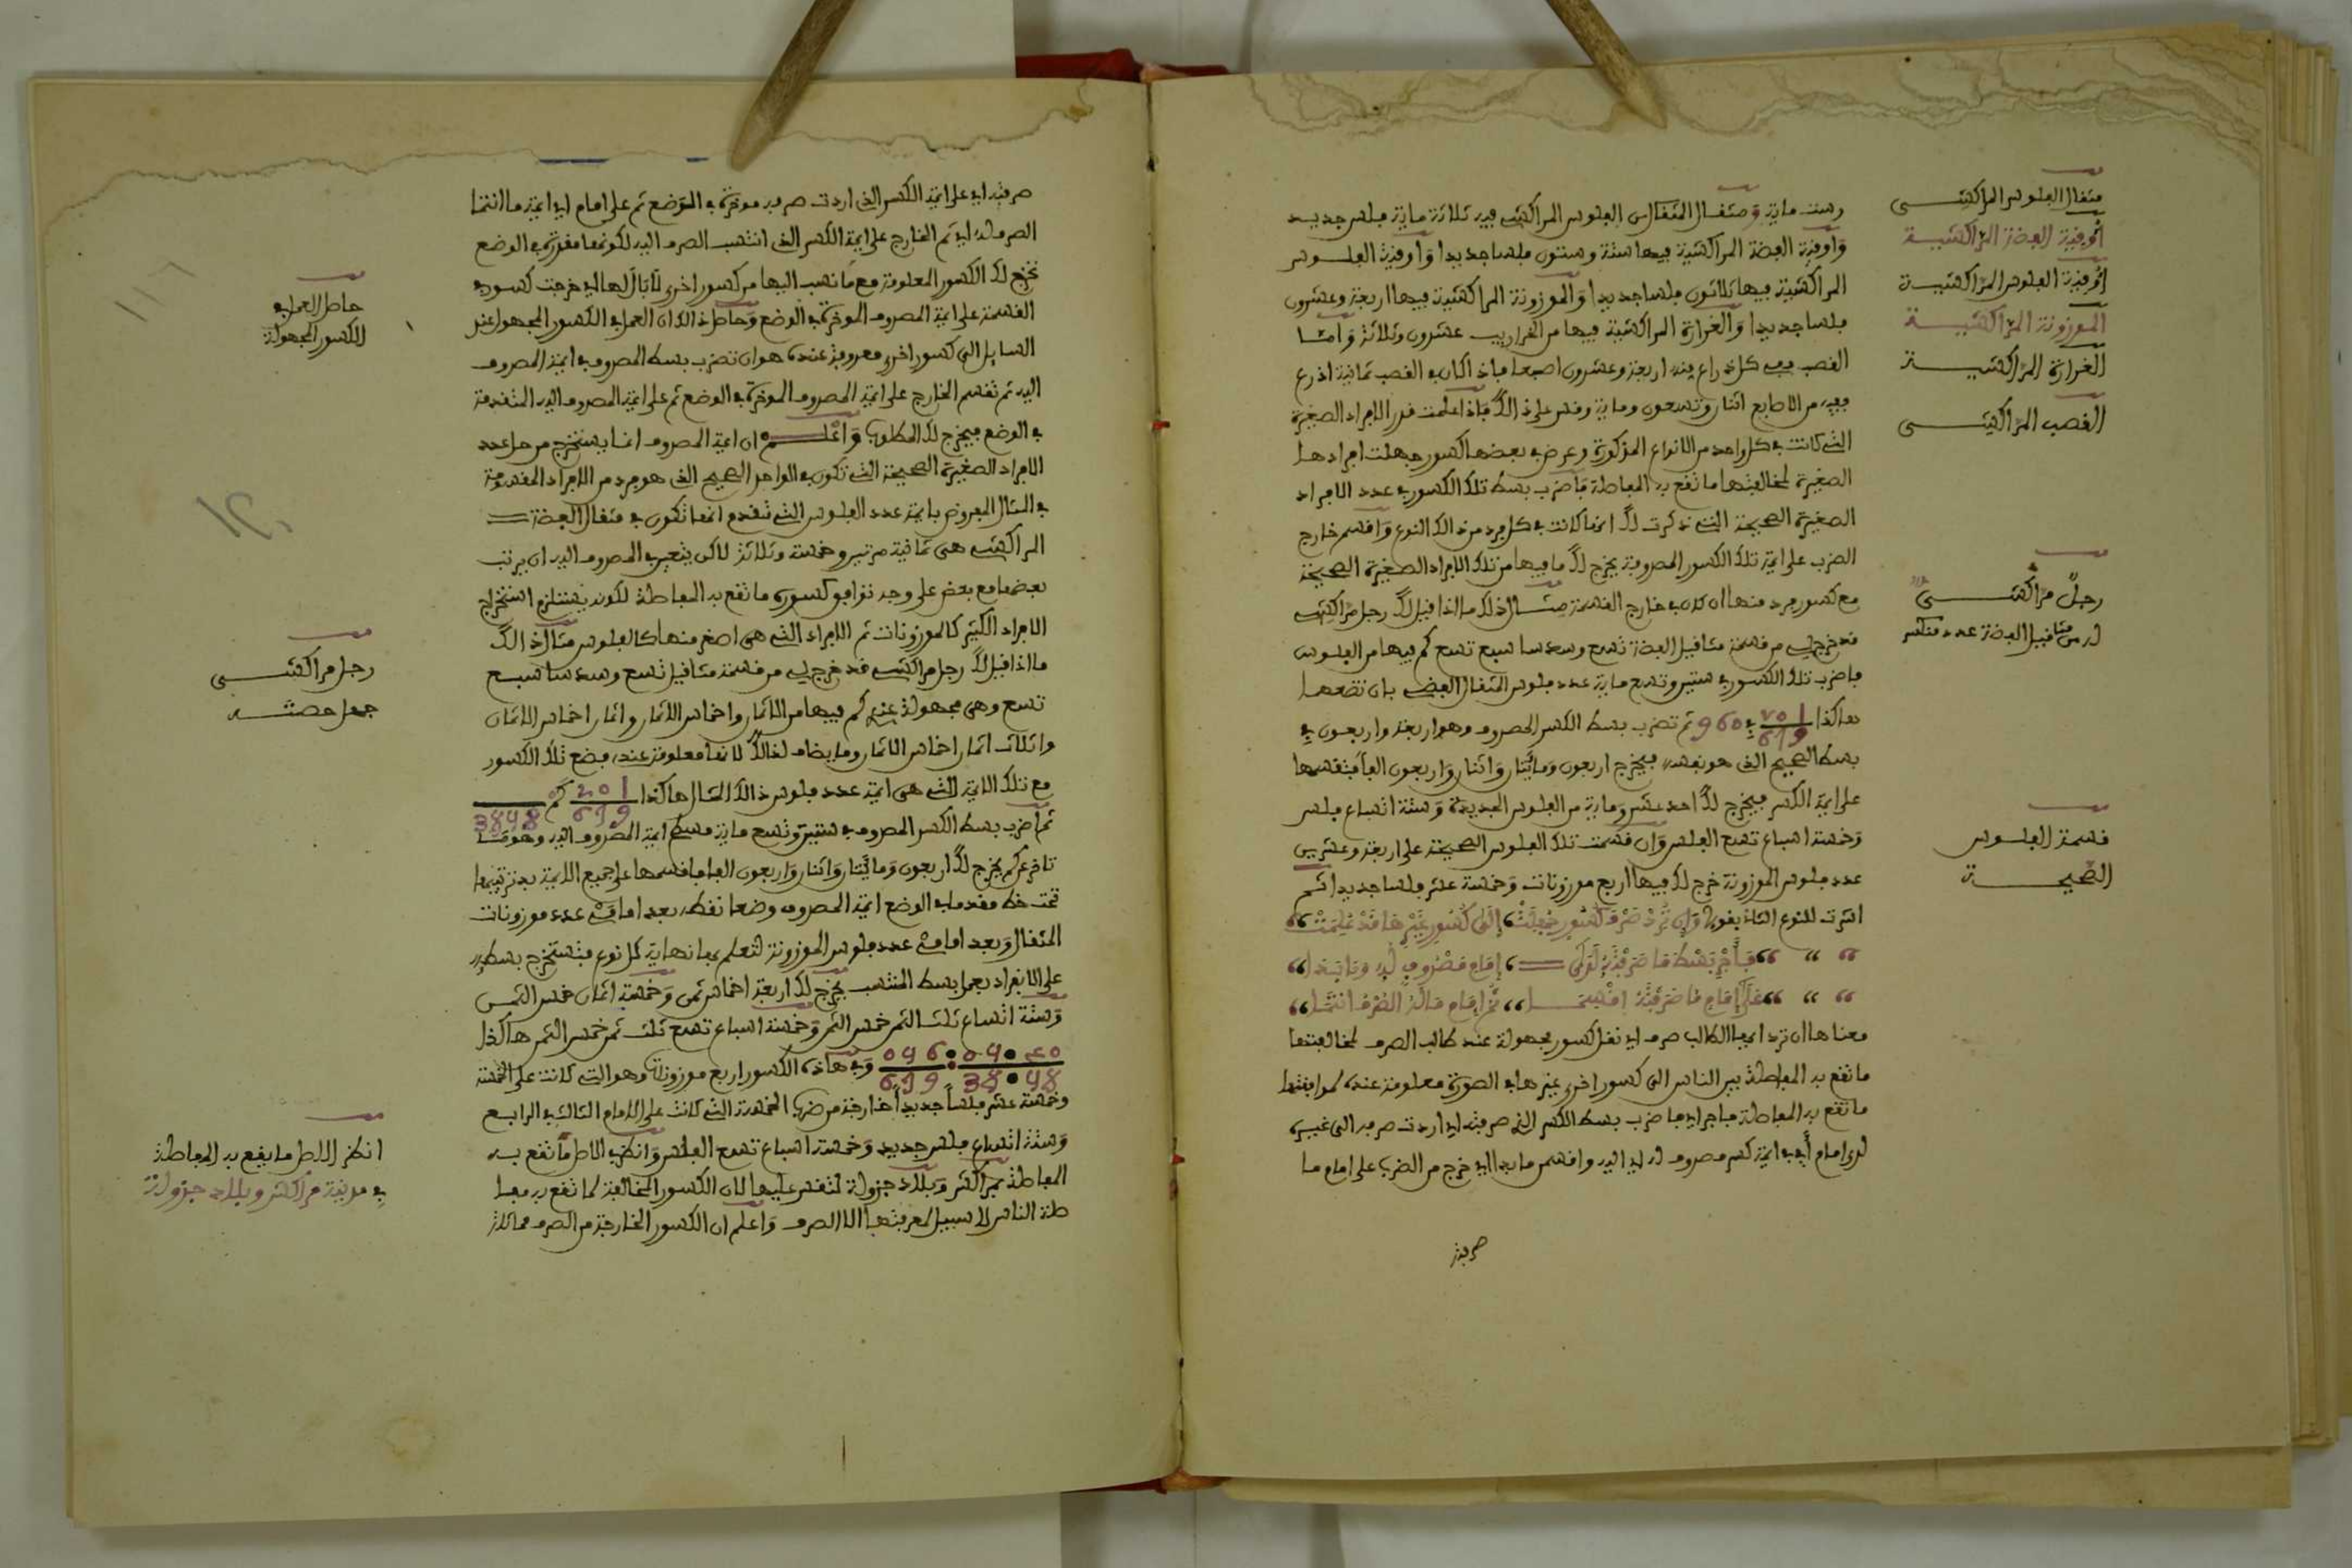 مثقال الفلوس المراكشي
أوقية الفضة المراكشية
أوقية الفلوس المراكشية
الموزونة المراكشية
الغرارة المراكشية
القصب المراكشي
رجل مراكشي
قسمة الفلوس
الصحيحة
وست ماية ومثقال المثقال من الفلوس المراكشي فيه ثلاثة ماية فلس جديد
وأوقية الفضة المراكشية فيها ستة وستون فلسا جديدا وأوقية الفلوس
المراكشية فيها ثلاثون فلسا جديدا والموزونة المراكشية فيها اربعة وعشرون
فلسا جديدا والغرارة المراكشية فيها من الخراريب عشرون وثلاثة وأما
القصب ففي كل ذراع منه اربعة وعشرون اصبعا فإذا كان في القصب ثمانية اذرع
ففيه من الاصابع اثنان وتسعون وماية وقس على ذالك فإذا علمت قدر الافراد الصغيرة
التي كانت في كل واحد من الانواع المذكورة وعرض في بعضها كسور جهلت افرادها
الصغيرة لمخالفتها ما تقع به المعاطة فاضرب بسط تلك الكسور في عدد الافراد
الصغيرة الصحيحة التي ذكرت لك انها كانت في كل فرد من ذالك النوع واقسم خارج
الضرب على ايمة تلك الكسور المصروفة يخرج لك ما فيها من تلك الافراد الصغيرة الصحيحة
مع كسور فرد منها ان كان في خارج القسمة مثال ذلك ما اذا قيل لك رجل مراكشي
قد خرج لي من قسمة مثاقيل الفضة تسع وسدسا سبع تسع كم فيها من الفلوس
فاضرب تلك الكسور في ستين وتسع ماية عدد فلوس المثقال الفضي بأن تضعها
هاكذا في 960 ثم تضرب بسط الكسر المصروف وهو اربعة واربعون في
بسط الصحيح الذي هو نفسه فيخرج اربعون ومائتان واثنان واربعون الفا فتقسمها
على ايمة الكسر فيخرج لك احد عشر وماية من الفلوس الجديدة وستة اتساع فلس
وخمسة اسباع تسع الفلس وان قسمت تلك الفلوس الصحيحة على اربعة وعشرين
عدد فلوس الموزونة خرج لك فيها اربع موزونات وخمسة عشر فلسا جديدا ثم
اشرت للنوع الثاني بقولي وإن ترد صرف كسور جهلت إلى كسور غيرها قد علمت
على إمام ما صرفته اقسما ثم إمام ماله الصرف انتما
معناها ان ترد ايها الطالب صرف اي نقل كسور مجهولة عند طالب الصرف لمخالفتها
ما تقع به المعاطة بين الناس الى كسور اخرى غيرها في الصورة معلومة عنده لموافقتها
ما تقع به المعاطة فاجر اي فاضرب بسط الكسر الذي صرفته اي اردت صرفه الى غيره
لدى امام أي في ايمة كسر مصروف له اي اليه واقسمن ما بدا اي خرج من الضرب على امام ما
صرفته
صرفته اي على ايمة الكسر الذي اردت صرفه موخرة في الوضع ثم على امام اي ايمة ما انتما
الصرف له اي ثم الخارج على ايمة الكسر الذي انتسب الصرف اليه لكونها مقدرة في الوضع
تخرج لك الكسور المعلومة مع ما نسب اليها من كسور اخرى لا بال لها اي خرجت كسور في
القسمة على ايمة المصروف الموخرة في الوضع وحاصل ذالك ان العمل في الكسور المجهولة عند
السايل الى كسور اخرى معروفة عنده هو ان تضرب بسط المصروف في ايمة المصروف
اليه ثم تقسم الخارج على ايمة المصروف الموخرة في الوضع ثم على ايمة المصروف اليه المتقدمة
في الوضع فيخرج لك المطلوب واعلم ان ايمة المصروف انما يستخرج من حل عدد
الافراد الصغيرة الصحيحة التي تكون في الواحد الصحيح الذي هو فرد من الافراد المقسومة
في المثال المفروض فايمة عدد الفلوس التي تقدم انها تكون في مثقال الفضة
المراكشي هي ثمانية مرتين وخمسة وثلاثة لاكن يتعين في المصروف اليه ان يرتب
بعضها مع بعض على وجه توافق كسوره ما تقع به المعاطة لكونه يستلزم استخراج
الافراد الكبيرة كالموزونات ثم الافراد التي هي اصغر منها كالفلوس مثال ذالك
ما اذا قيل لك رجل مراكشي قد خرج لي من قسمة مثاقيل تسع وسدسا سبع
تسع وهي مجهولة عندي كم فيها من الاثمان واخماس الاثمان واثمان اخماس الاثمان
واثلاث اثمان اخماس الاثمان وما يضاف لذالك لانها معلومة عنده فضع تلك الكسور
مع تلك الايمة التي هي ايمة عدد فلوس ذالك المثال هاكذا
ثم اضرب بسط الكسر المصروف في ستين وتسع ماية مسطح ايمة المصروف اليه
يخرج لك اربعون ومائتان واثنان واربعون الفا فاقسمها على جميع الايمة بعد ترتيبها
تحت خط مقدما في الوضع ايمة المصروف وضعا نقطه بعد امامي عدد موزونات
المثقال وبعد امامي عدد فلوس الموزونة لتعلم بها نهاية كل نوع فتستخرج بسطه
على الانفراد بعمل بسط المنتسب يخرج لك اربعة اخماس ثمن وخمسة اثمان خمس الثمن
وستة اتساع ثلث الثمن خمس الثمن وخمسة اسباع تسع ثلث ثمن خمس الثمن هاكذا
وفي هاذه الكسور اربع موزونات وهو التي كانت على الخمسة
وخمسة عشر فلسا جديدا خارجة من ضرب الخمسة التي كانت على الامام الثالث في الرابع
وستة اتساع فلس جديد وخمسة اسباع تسع الفلس وانظر الاصل ما تقع به
المعاطة بمراكش وبلاد جزولة لتقس عليها لان الكسور المخالفة لما تقع به معا
طة الناس لا سبيل لمعرفتها الا الصرف واعلم ان الكسور الخارجة من الصرف مماثلة
حاصل العمل في
الكسور المجهولة
رجل مراكشي
جهل حصته
انظر الاصل ما يقع به المعاطة
في مدينة مراكش وبلاد جزولة